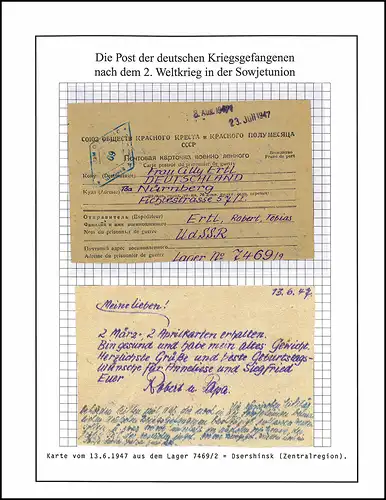 Die Post der deutschen Kriegsgefangenen
nach dem 2. Weltkrieg in der Sowjetunion
23. JULI 1947
СОЮЗ ОБЩЕСТВ КРАСНОГО КРЕСТА и КРАСНОГО ПОЛУМЕСЯЦА
СССР
Почтовая карточка военнопленного
Carte postale du prisonnier de guerre
Бесплатно
Franc de port
Кому (Destinataire) Frau Cilly Ertl
DEUTSCHLAND
Куда (Adresse) 13a Nürnberg
Fichtestrasse 57/I.
Отправитель (Expéditeur) Ertl, Robert, Tobias
Фамилия и имя военнопленного
Nom du prisonnier de guerre
UdSSR
Почтовый адрес военнопленного
Adresse du prisonnier de guerre Lager No 7469/2
13.6.47.
Meine lieben!
2 März-, 2 Aprilkarten erhalten.
Bin gesund und habe mein altes Gewicht.
Herzlichste Grüße und beste Geburtstags-
wünsche für Anneliese und Siegfried
Euer
Robert u. Papa.
Karte vom 13.6.1947 aus dem Lager 7469/2 = Dsershinsk (Zentralregion).